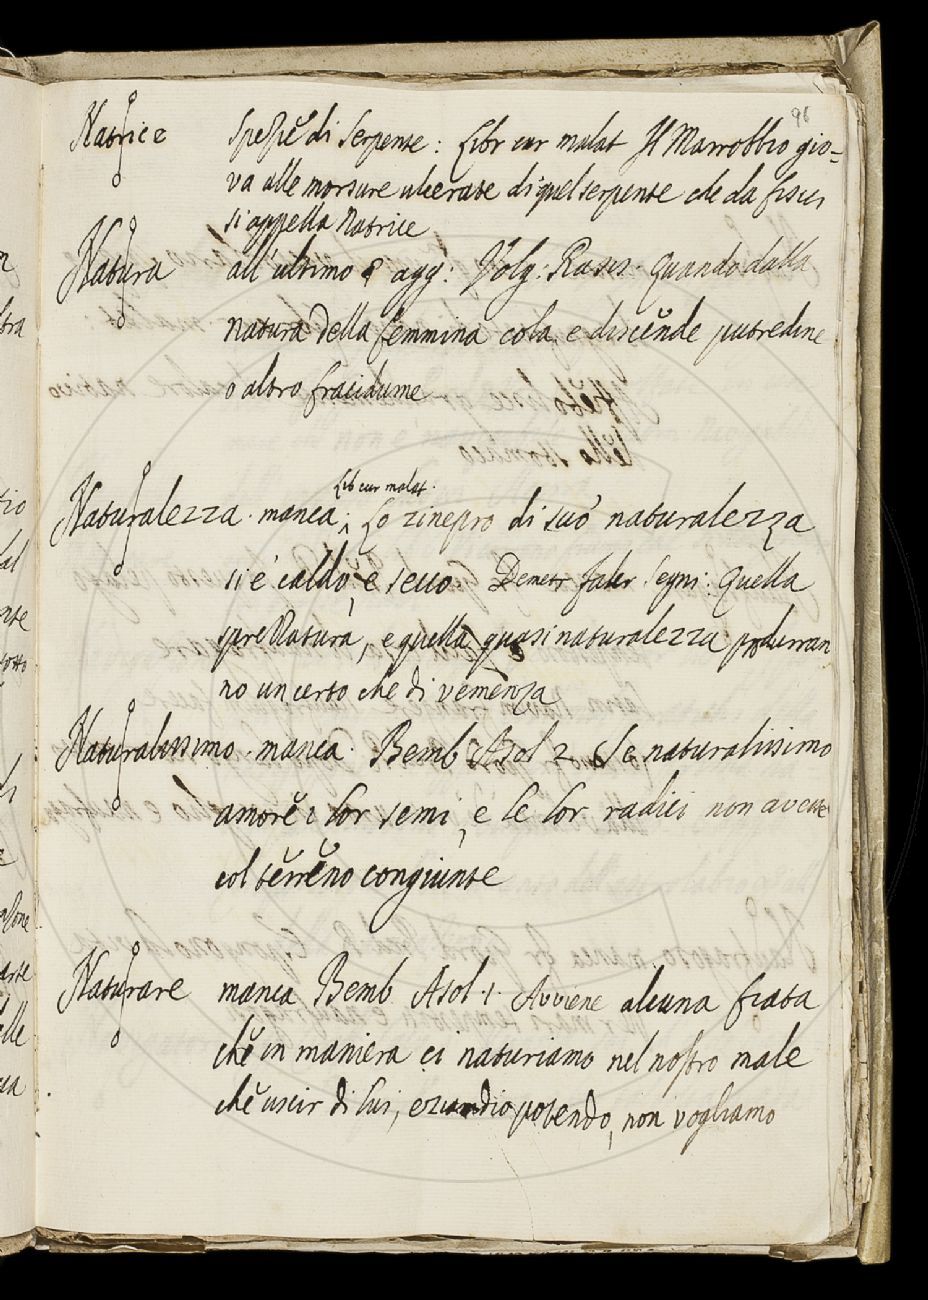 96
Natrice Spezie di Serpente: Libr cur malat Il Marrobbio gio-
va alle morsure ulcerate di quel serpente che da fisici
si appella Natrice
Natura all'ultimo § agg: Volg: Rasis. Quando dalla
natura della femmina cola, e discende putredine
o altro fracidume
Lib cur malat.
Naturalezza. manca. Lo zinepro di suo naturalezza
si è caldo, e secco Demetr faler Segni: Quella
pre Natura, e quella quasi naturalezza produrran
no un certo che di vemenza
Naturalissimo. manca. Bemb Asol 2 Se naturalissimo
amore i lor semi, e le lor radici non avesse
col terreno congiunte
Naturare manca Bemb Asol. 1. Avviene alcuna fiata
che in maniera ci naturiamo nel nostro male
che uscir di lui, eziandio potendo, non vogliamo